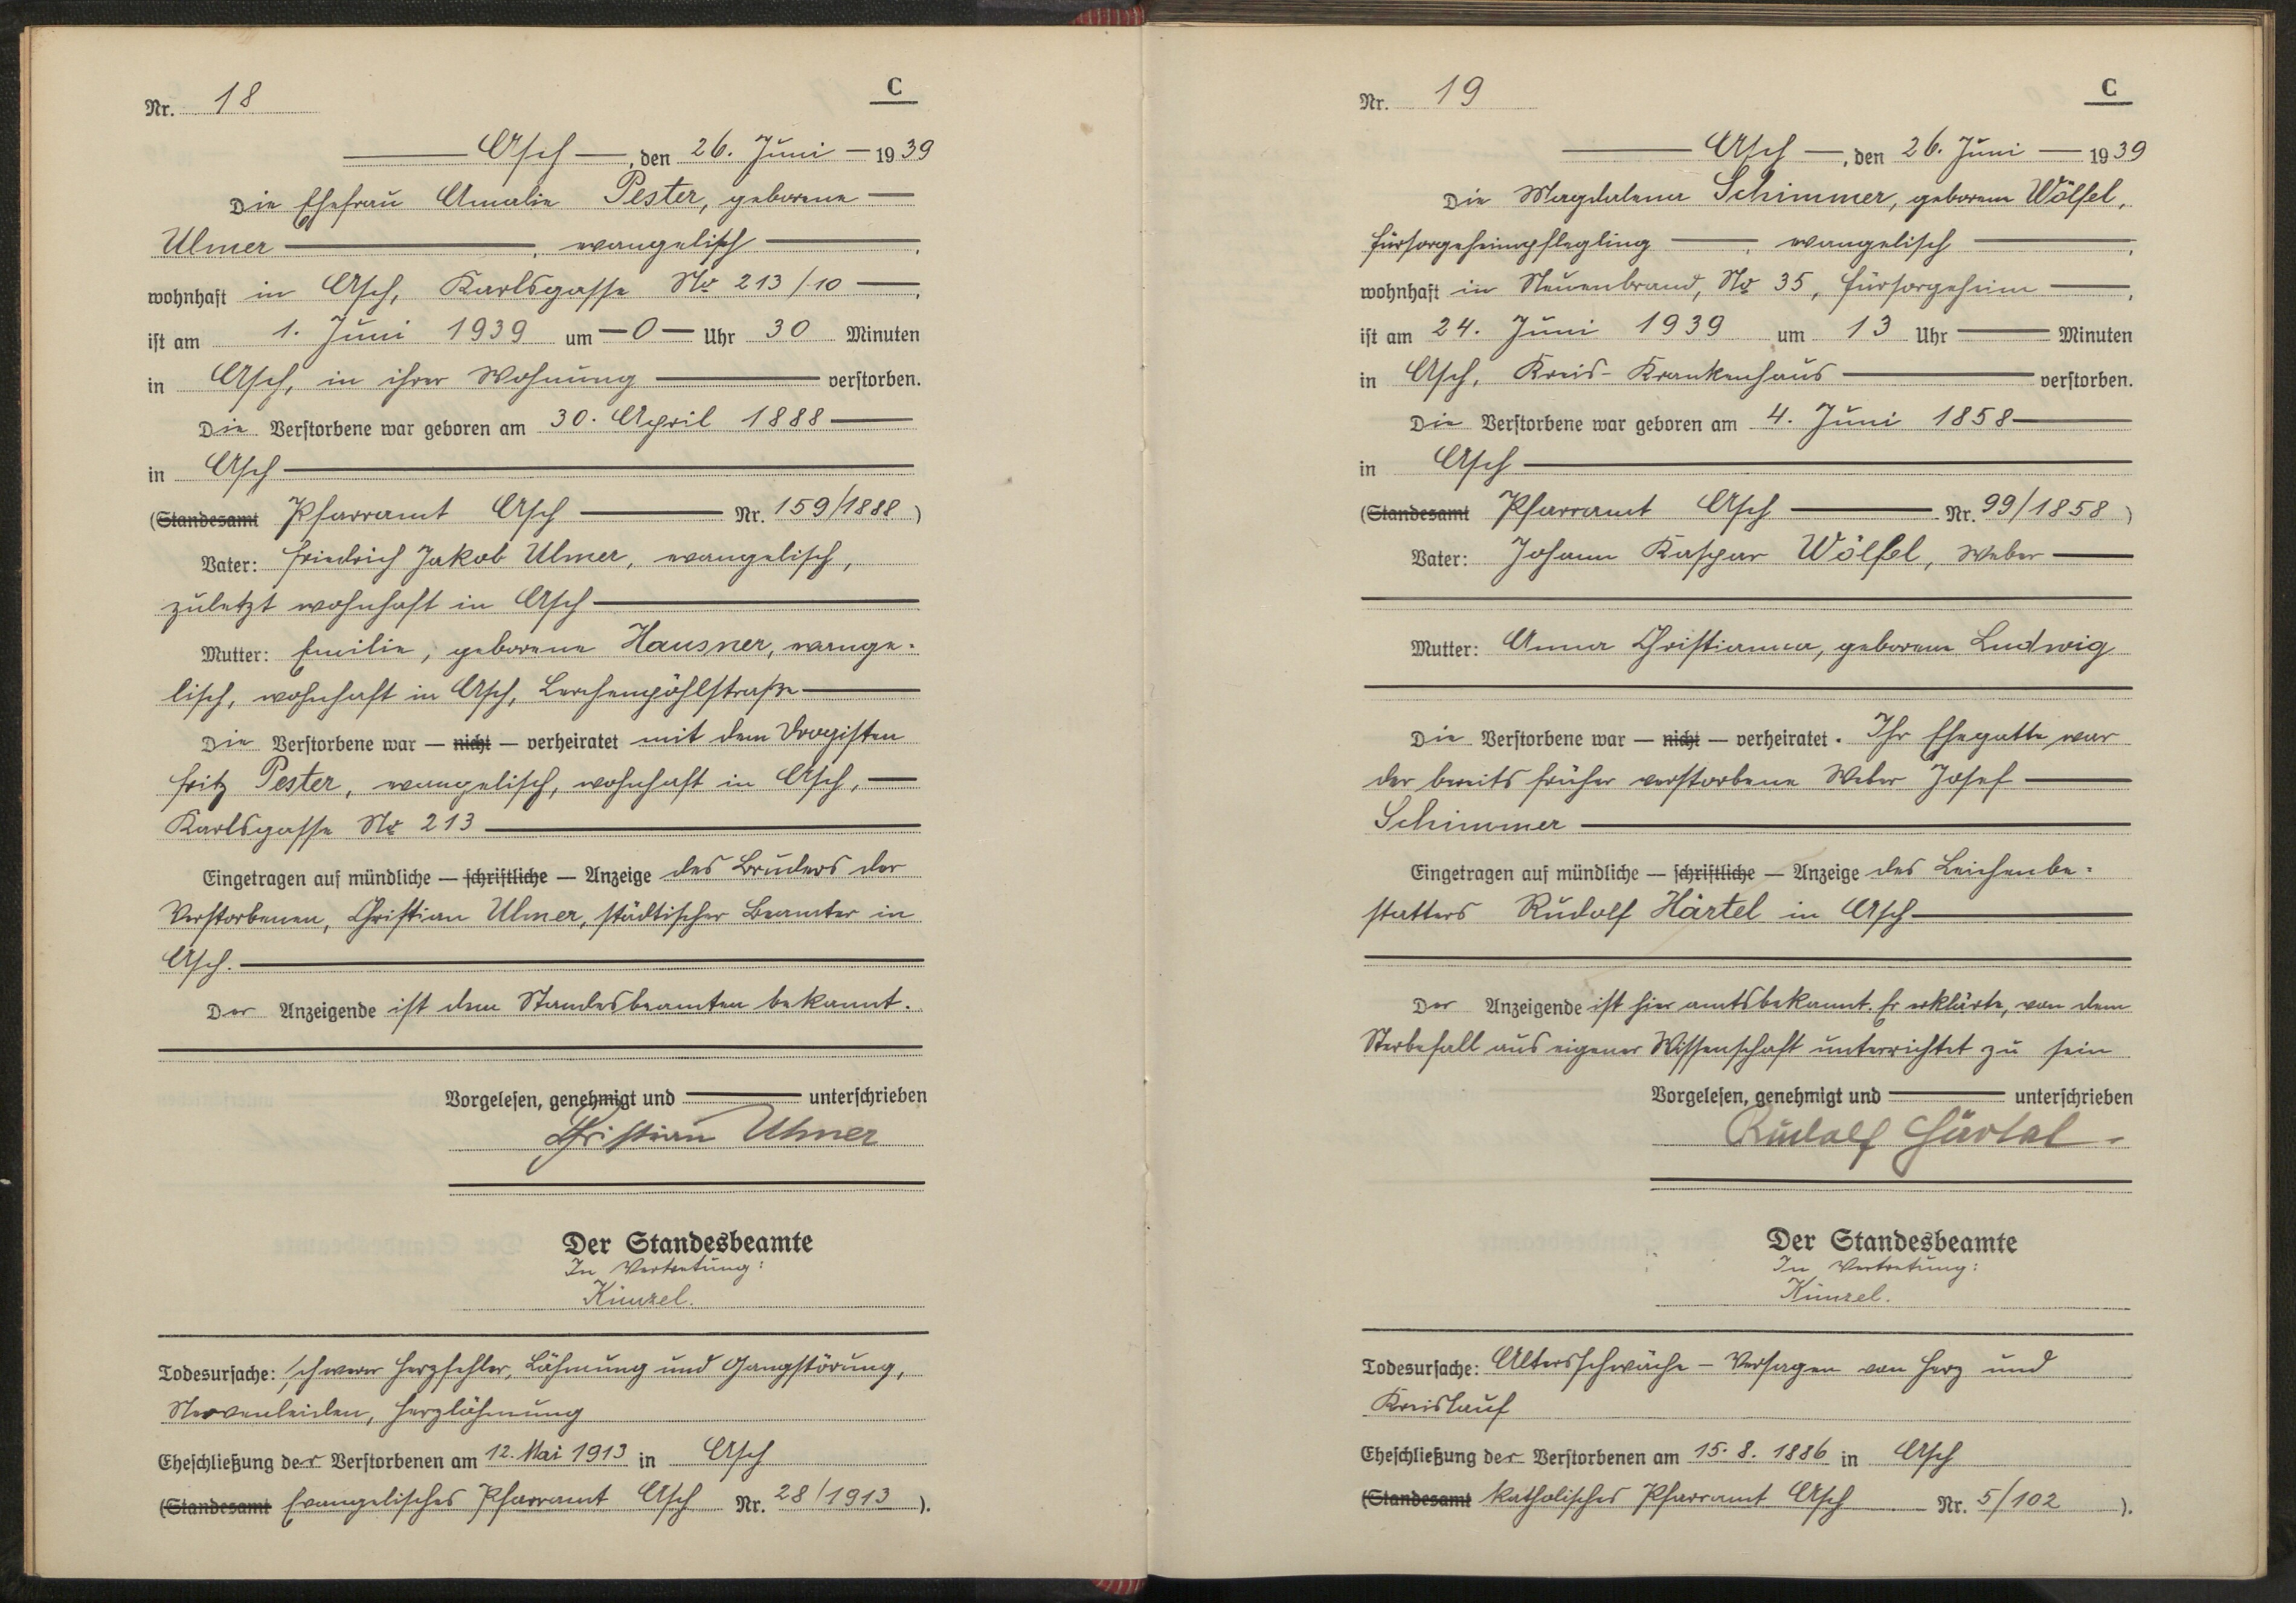 Nr. 18
C
Asch, den 26. Juni 1939
Die Ehefrau Amalie Pester, geborene
Ulmer, evangelisch,
wohnhaft in Asch, Karlsgasse No 213/10,
ist am 1. Juni 1939 um 0 Uhr 30 Minuten
in Asch, in ihrer Wohnung verstorben.
Die Verstorbene war geboren am 30. April 1888
in Asch
(Standesamt Pfarramt Asch Nr. 159/1888)
Vater: Friedrich Jakob Ulmer, evangelisch,
zuletzt wohnhaft in Asch
Mutter: Emilie, geborene Hausner, evange-
lisch, wohnhaft in Asch, Lerchenpöhlstraße
Die Verstorbene war — nicht — verheiratet mit dem Drogisten
Fritz Pester, evangelisch, wohnhaft in Asch,
Karlsgasse No 213
Eingetragen auf mündliche — schriftliche — Anzeige des Bruders der
Verstorbenen, Christian Ulmer, städtischer Beamter in
Asch.
Der Anzeigende ist dem Standesbeamten bekannt.
Vorgelesen, genehmigt und unterschrieben
Christian Ulmer
Der Standesbeamte
In Vertretung:
Künzel.
Todesursache: schwerer Herzfehler, Lähmung und Gangstörung,
Nervenleiden, Herzlähmung
Eheschließung der Verstorbenen am 12. Mai 1913 in Asch
(Standesamt Evangelisches Pfarramt Asch Nr. 28/1913).
Nr. 19
C
Asch, den 26. Juni 1939
Die Magdalena Schimmer, geborene Wölfel,
Fürsorgeheimpflegling, evangelisch,
wohnhaft in Neuenbrand, No 35, Fürsorgeheim,
ist am 24. Juni 1939 um 13 Uhr Minuten
in Asch, Kreis-Krankenhaus verstorben.
Die Verstorbene war geboren am 4. Juni 1858
in Asch
(Standesamt Pfarramt Asch Nr. 99/1858)
Vater: Johann Kaspar Wölfel, Weber
Mutter: Anna Christianna, geborene Ludwig
Die Verstorbene war — nicht — verheiratet. Ihr Ehegatte war
der bereits früher verstorbene Weber Josef
Schimmer
Eingetragen auf mündliche — schriftliche — Anzeige des Leichenbe-
statters Rudolf Härtel in Asch
Der Anzeigende ist hier amtsbekannt. Er erklärte, von dem
Sterbefall aus eigener Wissenschaft unterrichtet zu sein
Vorgelesen, genehmigt und unterschrieben
Rudolf Härtel.
Der Standesbeamte
In Vertretung:
Künzel.
Todesursache: Altersschwäche – Versagen von Herz und
Kreislauf
Eheschließung der Verstorbenen am 15. 8. 1886 in Asch
(Standesamt katholisches Pfarramt Asch Nr. 5/102).